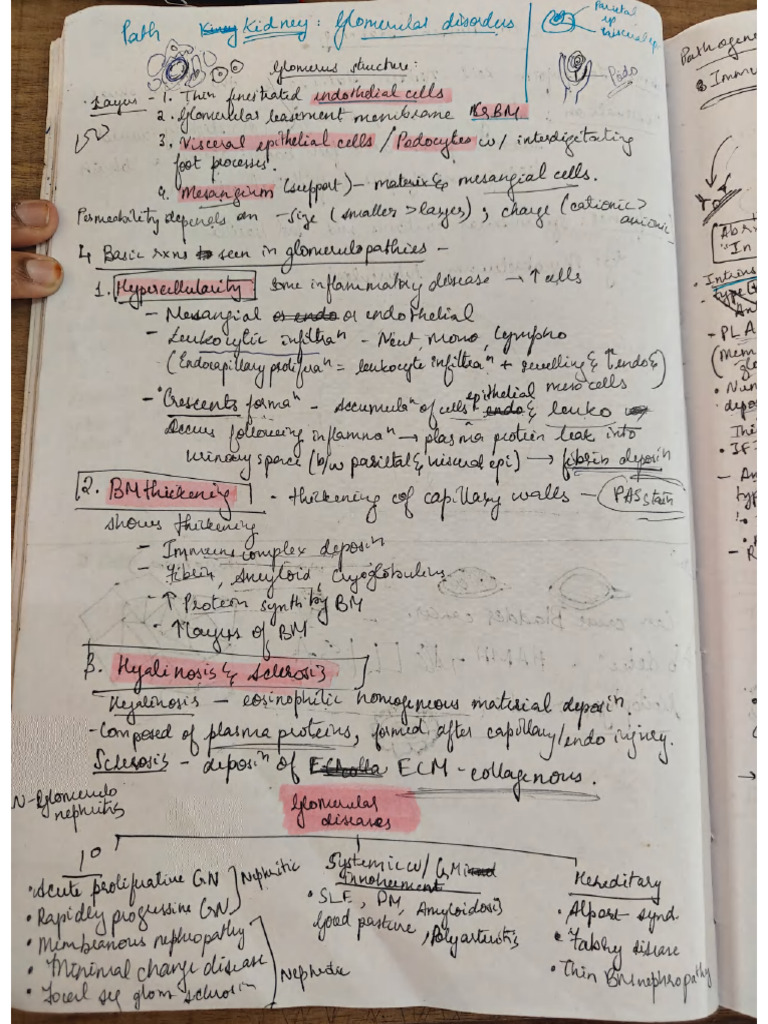 Path Kidney : Glomerular disorders
Parietal
ep
visceral ep
Glomerus structure :
Podo
Layers - 1. Thin fenestrated endothelial cells
2. Glomerular basement membrane GBM
3. Visceral epithelial cells / Podocytes w/ interdigitating
foot processes.
4. Mesangium (support) - matrix & mesangial cells.
Permeability depends on - size (smaller > larger) ; charge (cationic >
anionic
4 Basic rxns seen in glomerulopathies -
1. Hypercellularity : Some inflammatory disease → ↑ cells
- Mesangial or endothelial
- Leukocytic infiltraⁿ - Neut, mono, lympho
(Endocapillary proliferaⁿ = leukocyte infiltraⁿ + swelling & ↑ endo &
meso cells)
- Crescents formaⁿ - Accumulaⁿ of cells epithelial & leuko
Occurs following inflammaⁿ → plasma protein leak into
urinary space (b/w parietal & visceral epi) → fibrin deposiⁿ
2. BM thickening - thickening of capillary walls - PAS stain
shows thickening
- Immune complex deposiⁿ
- Fibrin, Amyloid, Cryoglobulins
- ↑ Protein synth by BM
- ↑ layers of BM
3. Hyalinosis & Sclerosis
Hyalinosis - eosinophilic homogeneous material deposiⁿ.
- Composed of plasma proteins, formed after capillary/endo injury.
Sclerosis - deposiⁿ of ECM - collagenous.
N - Glomerulo
nephritis
Glomerular
diseases
1°
- Acute proliferative GN
- Rapidly progressive GN
Nephritic
- Membranous nephropathy
- Minimal change disease
- Focal seg glom sclerosiⁿ
Nephrotic
Systemic w/ GM
involvement
- SLE, DM, Amyloidosis
Good pasture, Polyarteritis
Hereditary
- Alport synd.
- Fabry disease
- Thin BM nephropathy
Pathogene
Immu
Abr
"In
- Intrins
type
An
- PLA
(Mem
- Nen
depos
Thi
- IF
- An
typ
- R